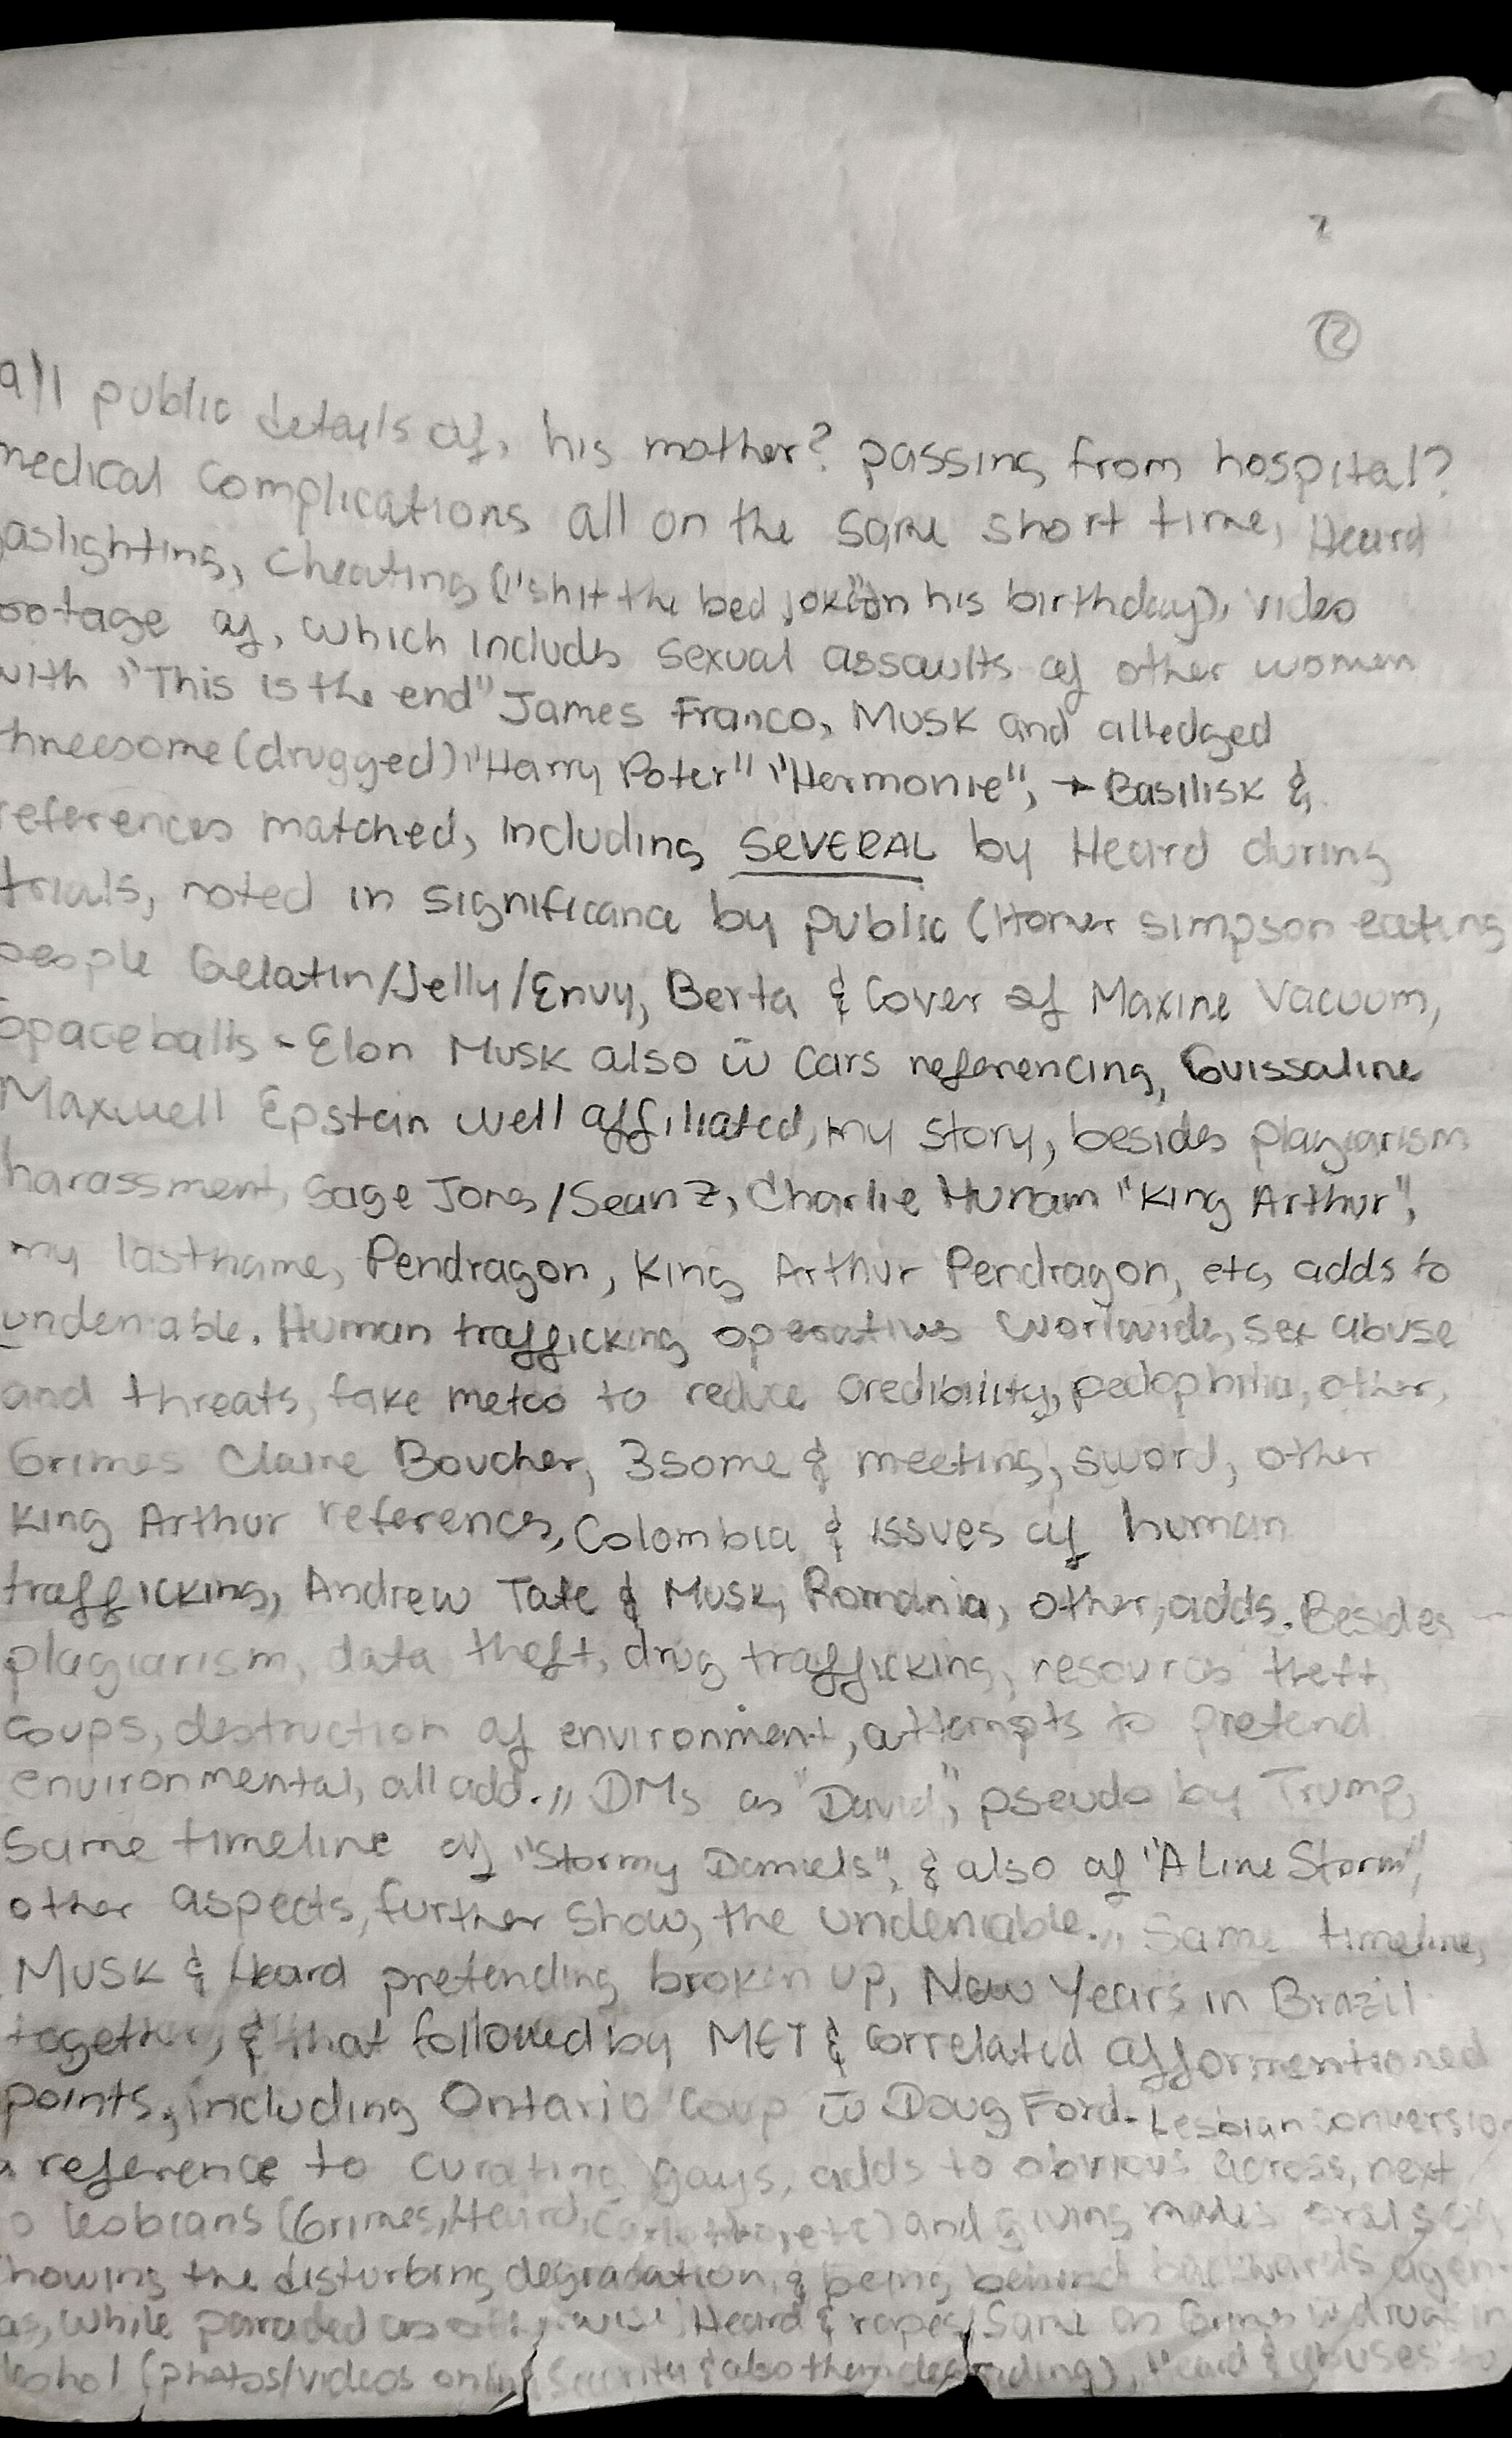 2
②
all public details of, his mother? passing from hospital?
medical complications all on the same short time, Heard
aslighting, cheating ("shit the bed joke" on his birthday), video
ootage of, which includs sexual assaults of other women
with "This is the end" James Franco, Musk and alledged
threesome (drugged) "Harry Poter" "Hermonie", → Basilisk &
references matched, including SEVERAL by Heard during
trials, noted in significance by public (Homer simpson eating
people Gelatin/Jelly/Envy, Berta & Cover of Maxine Vacuum,
Spaceballs - Elon Musk also w̄ Cars referencing, Guissaline
Maxwell Epstein well affiliated, my story, besides plagiarism
harassment, Sage Jons/Sean Z, Charlie Hunam "King Arthur",
my lastname, Pendragon, King Arthur Pendragon, etc, adds to
undeniable. Human trafficking operativs Worlwide, sex abuse
and threats, fake metoo to reduce credibility, pedophilia, other,
Grimes Claire Boucher, 3some & meeting, sword, other
King Arthur references, Colombia & issues of human
trafficking, Andrew Tate & Musk, Romania, other, adds. Besides
plagiarism, data theft, drug trafficking, resources theft,
coups, destruction of environment, attempts to pretend
environmental, all add.,, DMs as "David", pseudo by Trump,
Same timeline of "Stormy Daniels", & also of "A Line Storm",
other aspects, further show, the undeniable.,, Same timeline,
Musk & Heard pretending broken up, New Years in Brazil
together, & that followed by MET & correlated afformentioned
points, including Ontario Coup w̄ Doug Ford. Lesbian conversion
a reference to curating gays, adds to obvious across, next
o lesbians (Grimes, Heard, etc) and giving males oral sex,
howing the disturbing degradation, & being behind backwards agen-
as, while paraded as Heard & rapes/Same as Grimes w drugs in
lcohol (photos/videos online Security & also them degrading), Heard & abuses to